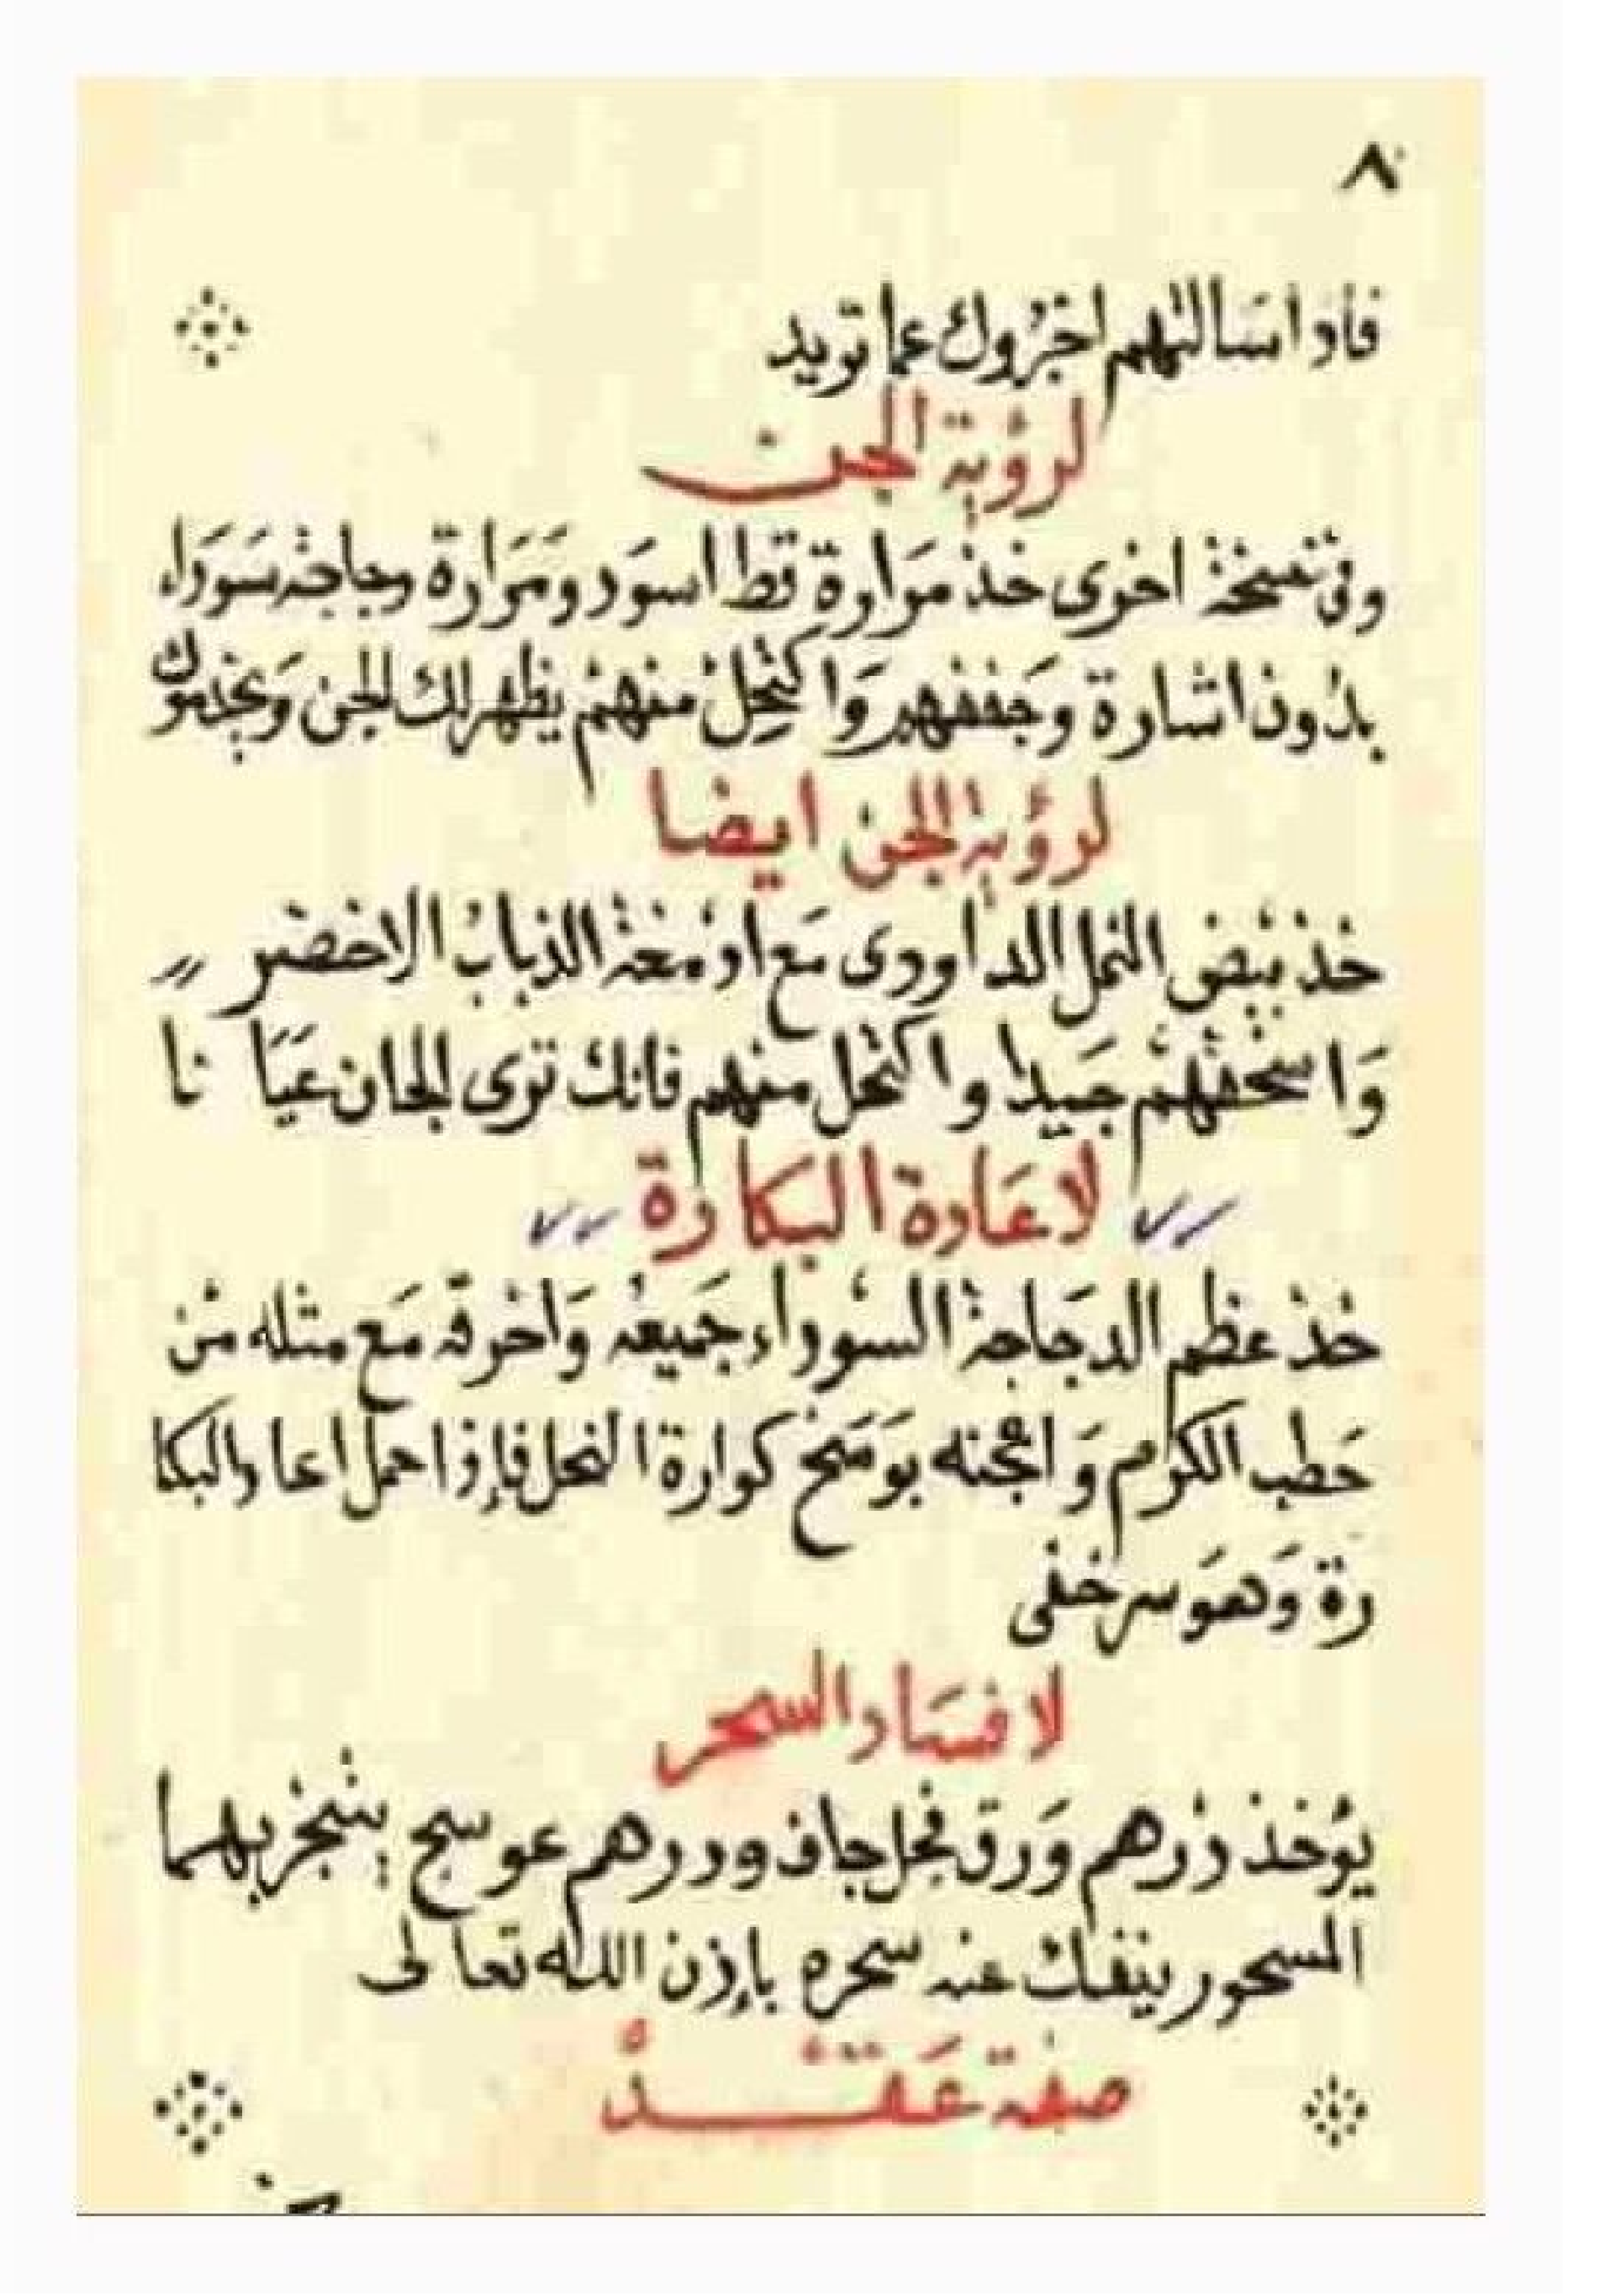 ٨
فاذا سالتهم اخبروك عما تريد
لرؤية الجن
وفي نسخة اخرى خذ مرارة قط اسود ومرارة دجاجة سوداء
بدون اشارة وجففهم واكتحل منهم يظهر لك الجن ويخدموك
لرؤية الجن ايضا
خذ بيض النمل الداوودى مع اومغة الذباب الاخضر
واسحقهم جيدا واكتحل منهم فانك ترى الجان عيا نا
لاعادة البكارة
خذ عظم الدجاجة السوداء جميعه واحرقه مع مثله من
حطب الكرم واعجنه بوسخ كوارة النحل فإذا حمل اعاد البكا
رة وهو سر خفى
لافساد السحر
يؤخذ درهم ورق فجل جاف ودرهم عوسج يتبخر بهما
المسحور ينفك عنه سحره بإذن الله تعالى
صفة عقد